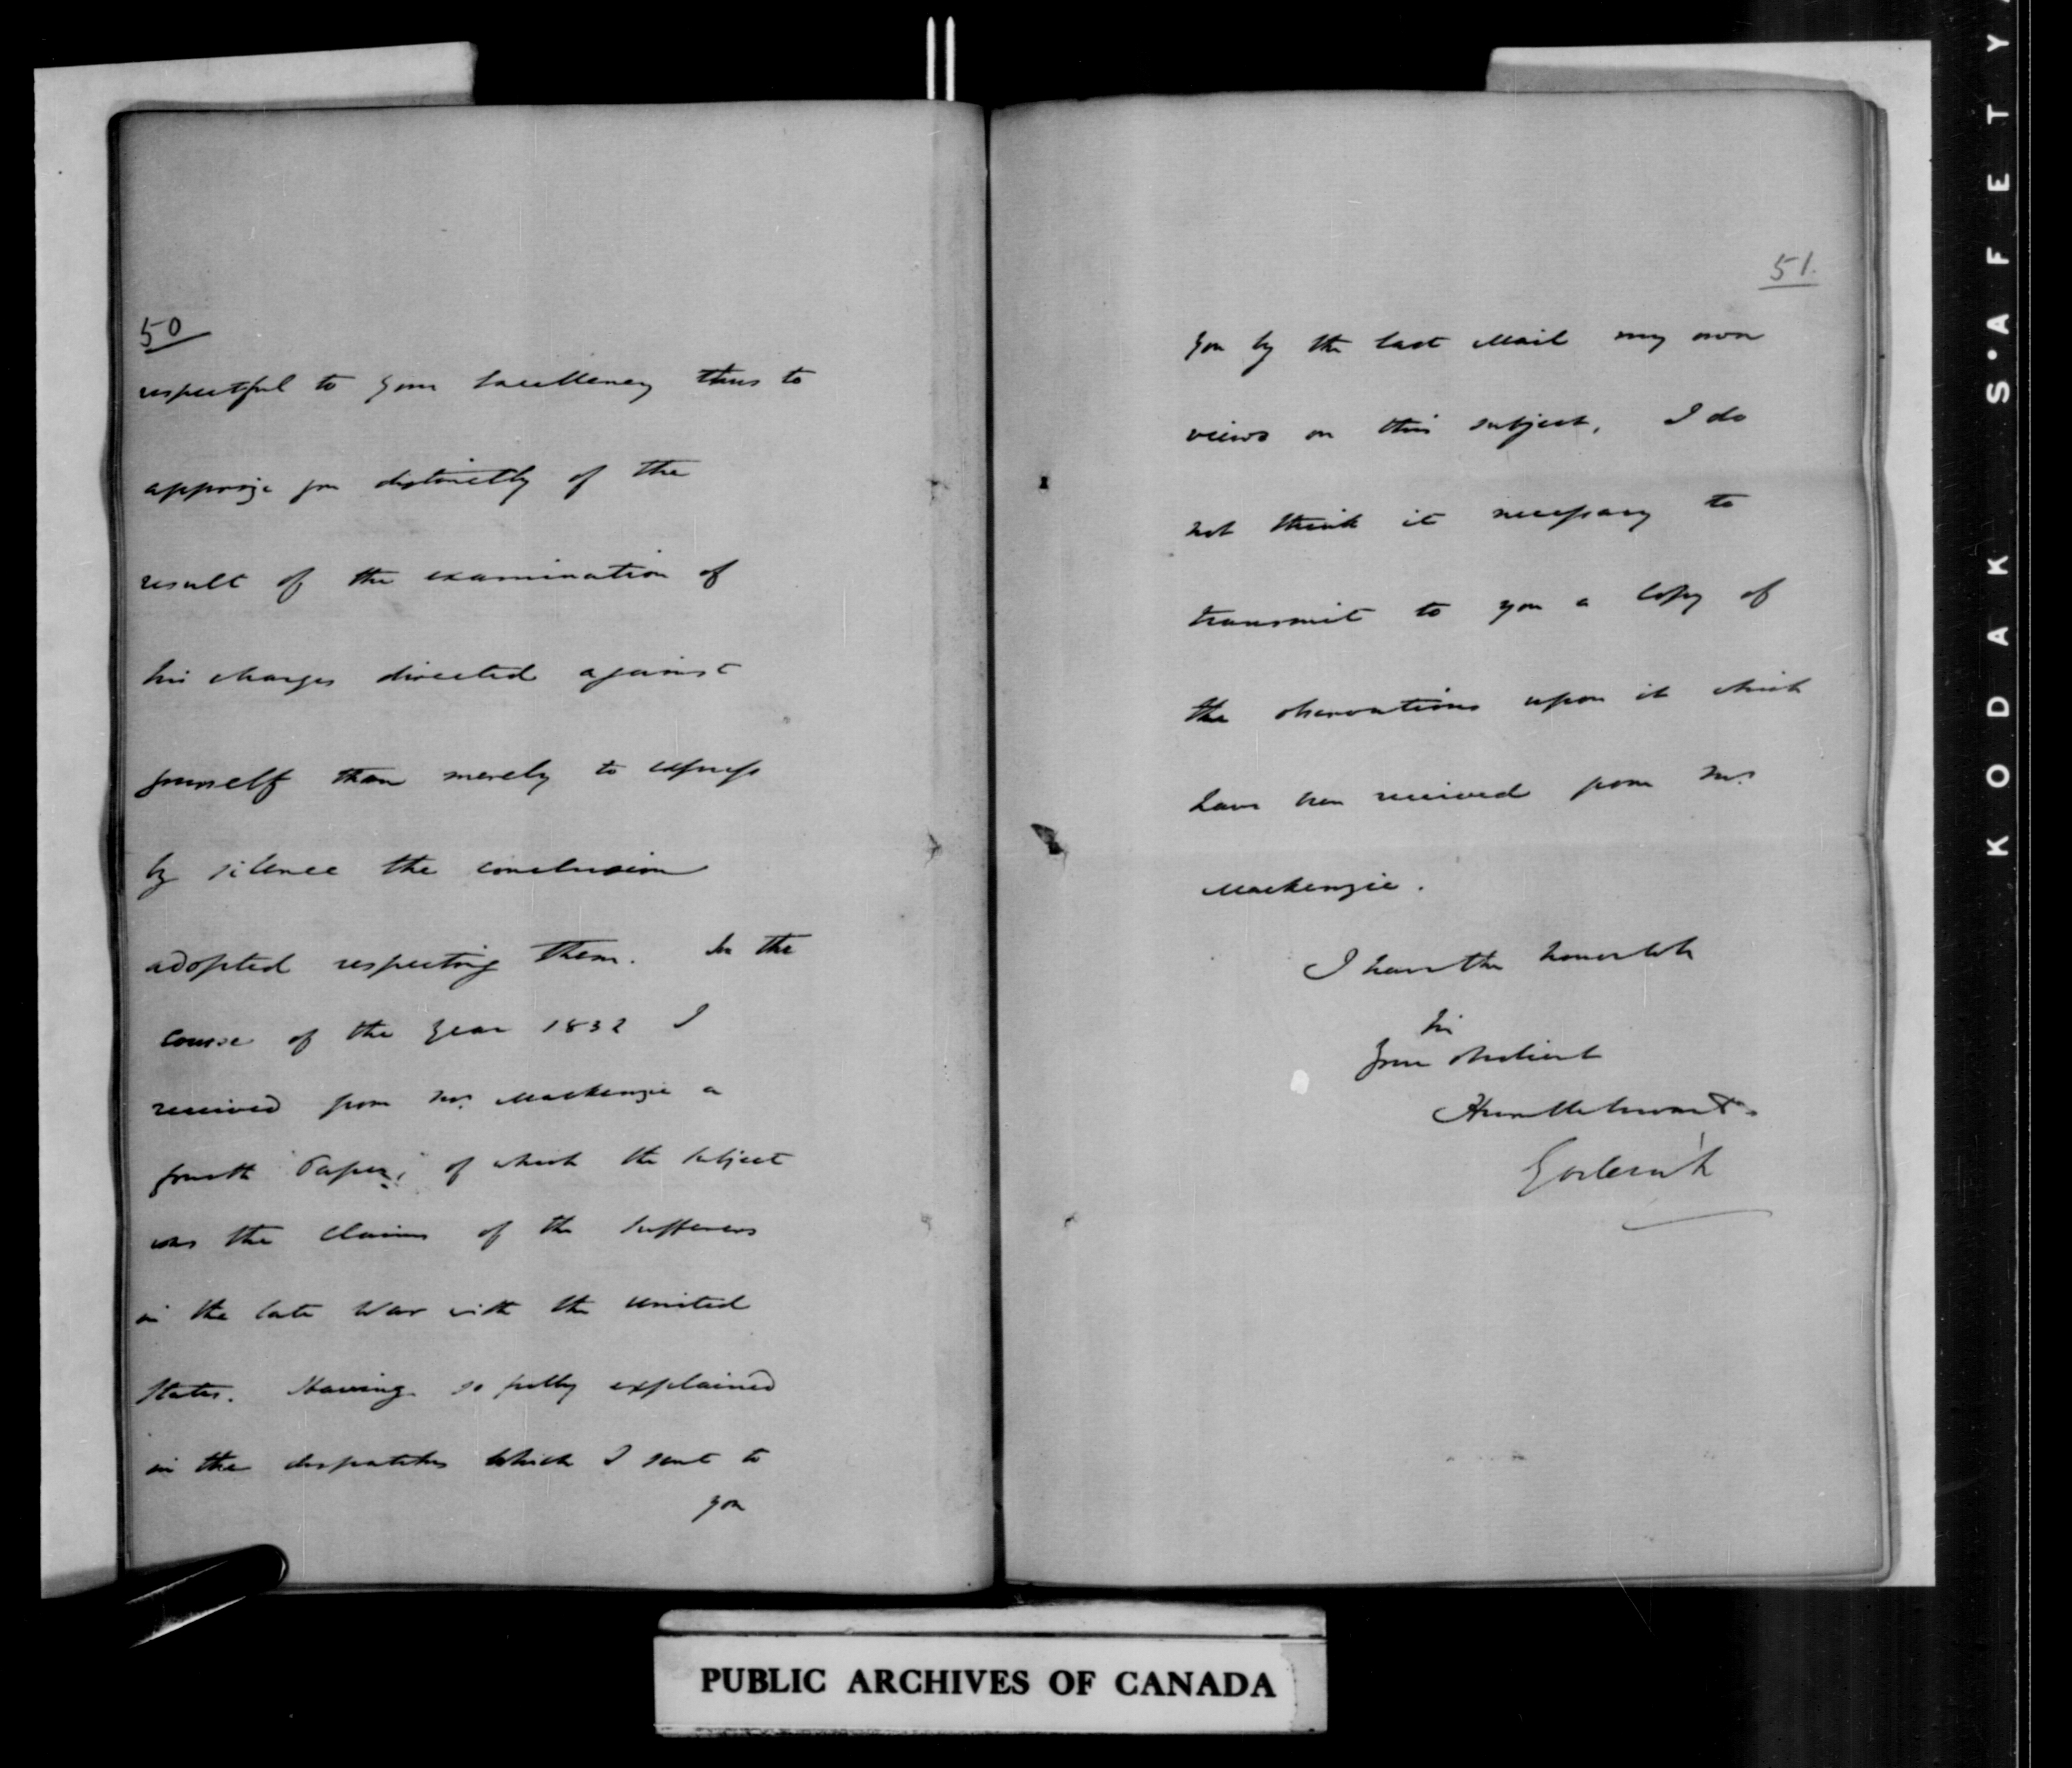 50
respectful to your Excellency thus to
apprize you distinctly of the
result of the examination of
his charges directed against
yourself than merely to express
by silence the conclusion
adopted respecting them. In the
course of the year 1832 I
received from Mr. Mackenzie a
fourth "Paper," of which the subject
was the claims of the Sufferers
in the late War with the United
States. Having so fully explained
in the despatches which I sent to
you
51.
you by the last Mail my own
views on this subject, I do
not think it necessary to
transmit to you a Copy of
the observations upon it which
have been received from Mr.
Mackenzie.
I have the honor to be
Sir
Your obedient
Humble Servant
Goderich
PUBLIC ARCHIVES OF CANADA
KODAK S•AFETY